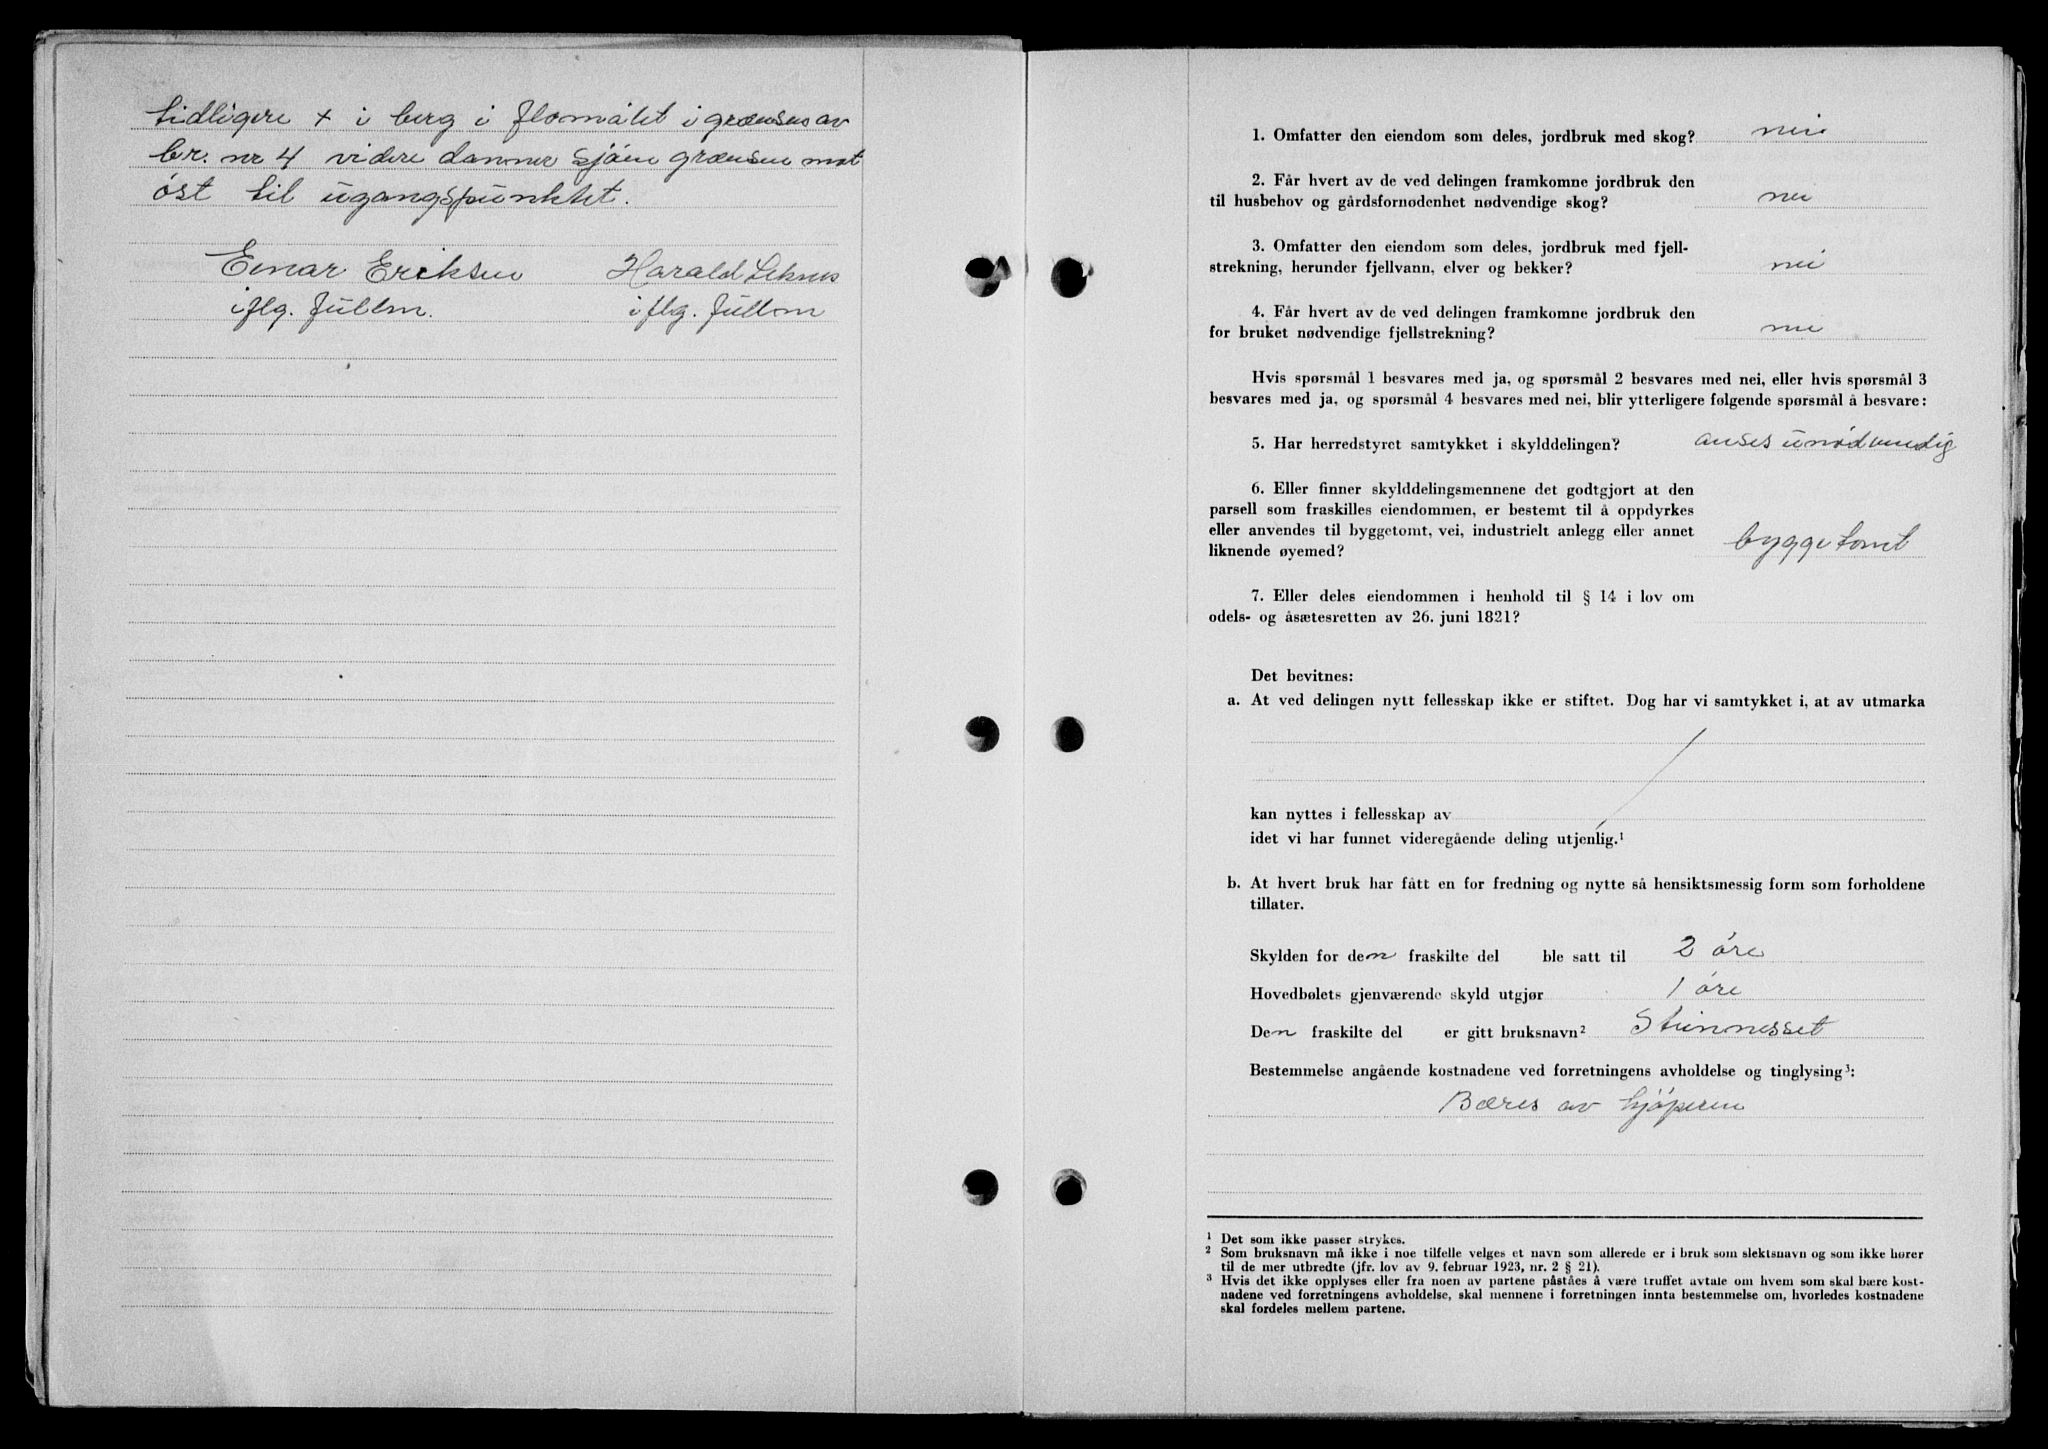 tidligere + i berg i flomålet i grænsen av
br. nr 4 videre danner sjøen grænsen mot
øst til ugangspunktet.
Einar Eriksen Harald Leknes
iflg. fullm. i flg. fullom
1. Omfatter den eiendom som deles, jordbruk med skog? nei
2. Får hvert av de ved delingen framkomne jordbruk den
til husbehov og gårdsfornødenhet nødvendige skog? nei
3. Omfatter den eiendom som deles, jordbruk med fjell-
strekning, herunder fjellvann, elver og bekker? nei
4. Får hvert av de ved delingen framkomne jordbruk den
for bruket nødvendige fjellstrekning? nei
Hvis spørsmål 1 besvares med ja, og spørsmål 2 besvares med nei, eller hvis spørsmål 3
besvares med ja, og spørsmål 4 besvares med nei, blir ytterligere følgende spørsmål å besvare:
5. Har herredstyret samtykket i skylddelingen? anses unødvendig
6. Eller finner skylddelingsmennene det godtgjort at den
parsell som fraskilles eiendommen, er bestemt til å oppdyrkes
eller anvendes til byggetomt, vei, industrielt anlegg eller annet
liknende øyemed? byggetomt
7. Eller deles eiendommen i henhold til § 14 i lov om
odels- og åsætesretten av 26. juni 1821?
Det bevitnes:
a. At ved delingen nytt fellesskap ikke er stiftet. Dog har vi samtykket i, at av utmarka
kan nyttes i fellesskap av
idet vi har funnet videregående deling utjenlig.¹
b. At hvert bruk har fått en for fredning og nytte så hensiktsmessig form som forholdene
tillater.
Skylden for den fraskilte del ble satt til 2 øre
Hovedbølets gjenværende skyld utgjør 1 øre
Den fraskilte del er gitt bruksnavn² Steinnesset
Bestemmelse angående kostnadene ved forretningens avholdelse og tinglysing³:
Bæres av kjøperen
¹ Det som ikke passer strykes.
² Som bruksnavn må ikke i noe tilfelle velges et navn som allerede er i bruk som slektsnavn og som ikke hører
til de mer utbredte (jfr. lov av 9. februar 1923, nr. 2 § 21).
³ Hvis det ikke opplyses eller fra noen av partene påståes å være truffet avtale om hvem som skal bære kost-
nadene ved forretningens avholdelse, skal mennene i forretningen innta bestemmelse om, hvorledes kostnadene
skal fordeles mellem partene.